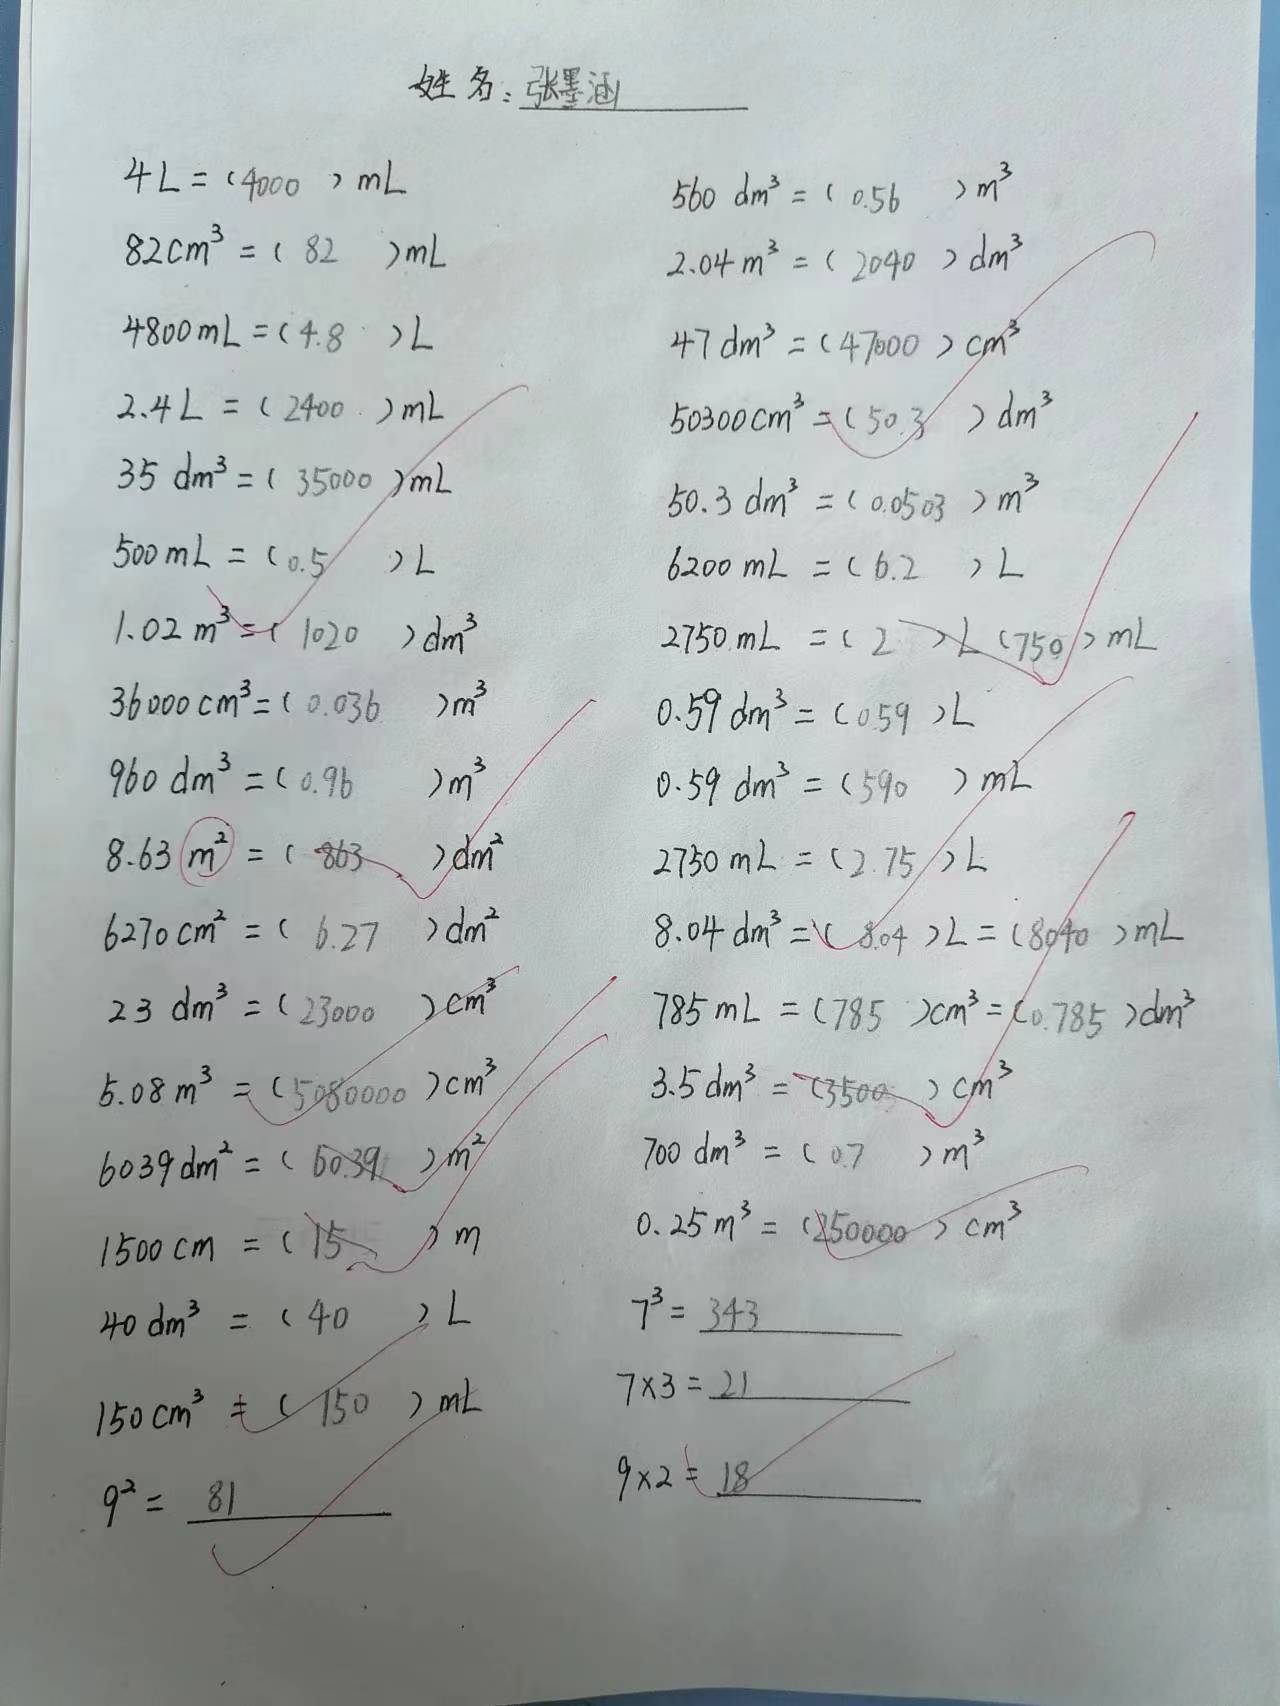 姓名：张墨涵
4L=(4000)mL
82cm³=(82)mL
4800mL=(4.8)L
2.4L=(2400)mL
35dm³=(35000)mL
500mL=(0.5)L
1.02m³=(1020)dm³
36000cm³=(0.036)m³
960dm³=(0.96)m³
8.63m²=(863)dm²
6270cm²=(6.27)dm²
23dm³=(23000)cm³
5.08m³=(5080000)cm³
6039dm²=(60.39)m²
1500cm=(15)m
40dm³=(40)L
150cm³=(150)mL
9²=81
560dm³=(0.56)m³
2.04m³=(2040)dm³
47dm³=(47000)cm³
50300cm³=(50.3)dm³
50.3dm³=(0.0503)m³
6200mL=(6.2)L
2750mL=(2)L(750)mL
0.59dm³=(0.59)L
0.59dm³=(590)mL
2750mL=(2.75)L
8.04dm³=(8.04)L=(8040)mL
785mL=(785)cm³=(0.785)dm³
3.5dm³=(3500)cm³
700dm³=(0.7)m³
0.25m³=(250000)cm³
7³=343
7×3=21
9×2=18